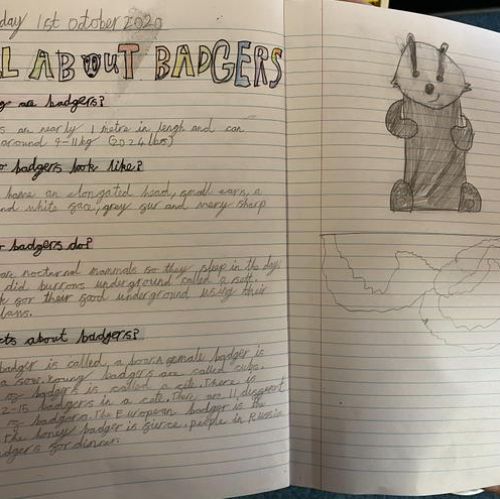 day 1st October 2020
L ABOUT BADGERS
g are badgers?
s are nearly 1 metre in lengh and can
around 9-11kg (2024lbs)
o badgers look like?
have an elongated head, small ears, a
nd white face, grey fur and very sharp
r badgers do?
are nocturnal mammals so they sleep in the day
did burrows underground called a sett.
k for their food underground using their
laws.
cts about badgers?
badger is called, a boar, female badger is
a sow. Young badgers are called cubs.
of badgers is called a cete. There is
2-15 badgers in a cete. There are 11 different
of badgers. The European badger is the
the honey badger is fierce, people in Russia
adgers for dinner.